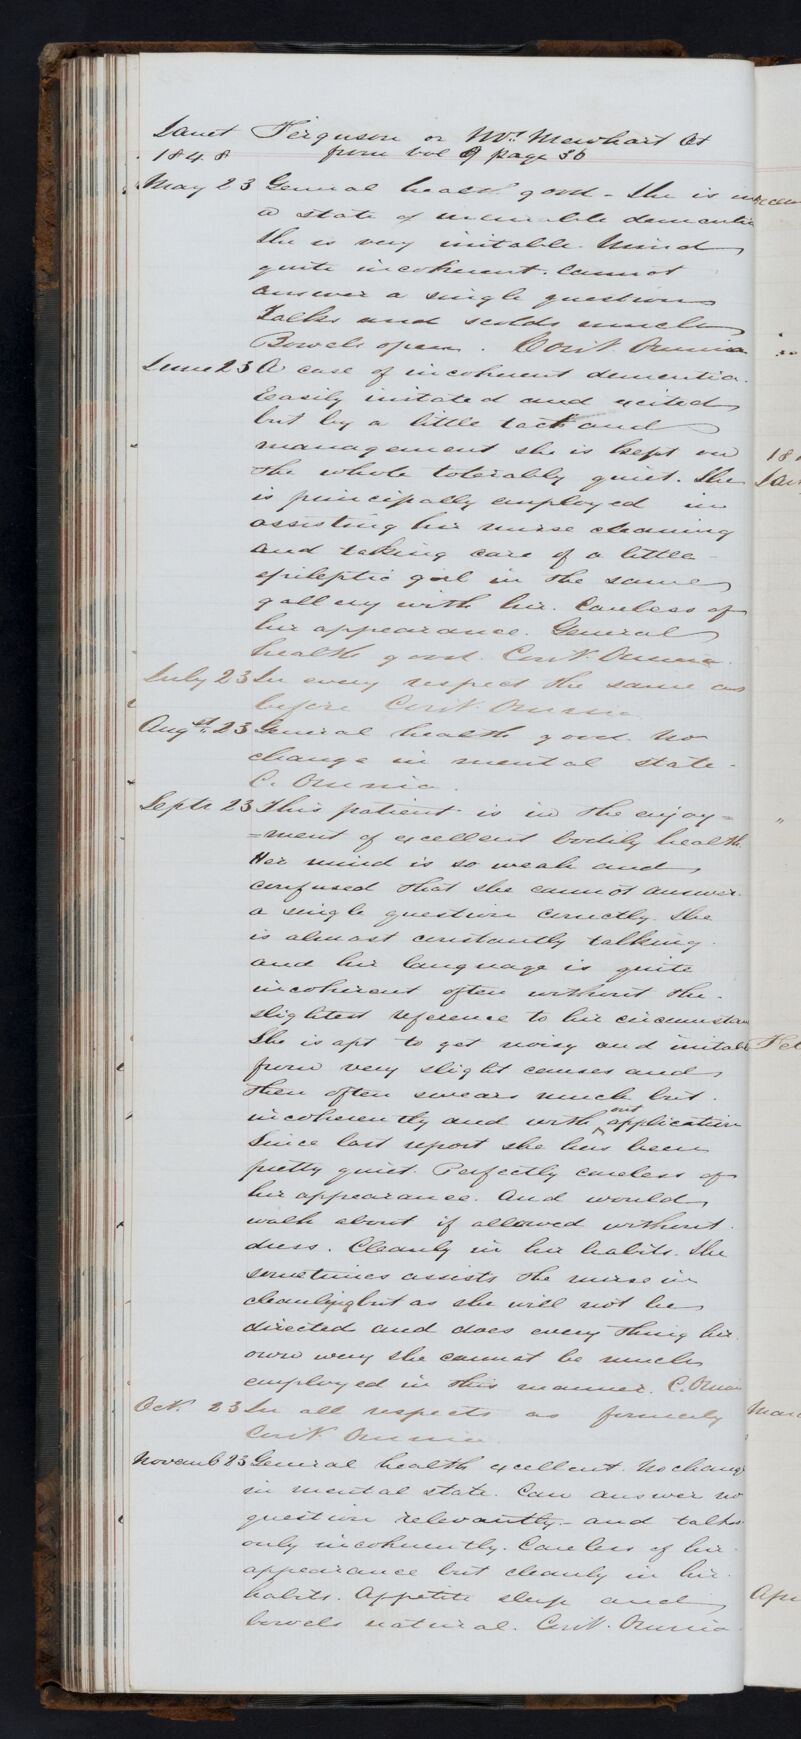 Janet Ferguson or Mrs. Mewhart Æt
1848 from Vol 9 page 36
May 23 General health good - She is in
a state of incurable dementia
She is very irritable. Mind
quite incoherent. Cannot
answer a single question
Talks and scolds much
Bowels open. Cont. Omnia
June 23 A case of incoherent dementia.
Easily irritated and excited
but by a little tact and
management she is kept on
the whole tolerably quiet. She
is principally employed in
assisting her nurse cleaning
and taking care of a little
epileptic girl in the same
gallery with her. Careless of
her appearance. General
health good. Cont. Omnia.
July 23 In every respect the same as
before Cont. Omnia
Augst. 23 General health good. No
change in mental state.
C. Omnia.
Septr 23 This patient is in the enjoy=
=ment of excellent bodily health.
Her mind is so weak and
confused that she cannot answer
a single question correctly. She
is almost constantly talking.
and her language is quite
incoherent often without the
slightest reference to her circumstan
She is apt to get noisy and irritable
from very slight causes and
then often swears much but
incoherently and with out application
Since last report she has been
pretty quiet. Perfectly careless of
her appearance. And would
walk about if allowed without
dress. Cleanly in her habits. She
sometimes assists the nurse in
cleaning but as she will not be
directed and does every thing her
own way she cannot be much
employed in this manner. C. Omnia
Oct. 23 In all respects as formerly
Cont. Omnia.
Novemb 23 General health excellent. No change
in mental state. Can answer no
question relevantly - and talks
only incoherently. Careless of her
appearance but cleanly in her
habits. Appetite sleep and
bowels natural. Cont. Omnia.